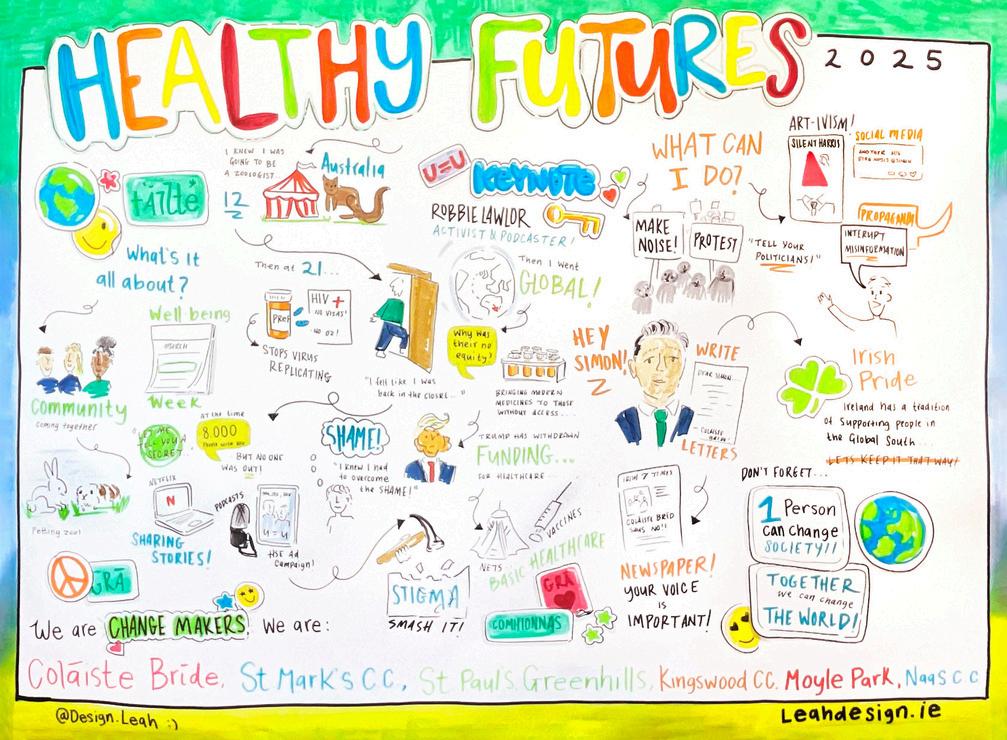 HEALTHY FUTURES
2025
fáilte
What's it
all about?
Community
coming together
Petting zoo!
GRÁ
Well being
Week
I KNEW I WAS
GOING TO BE
A ZOOLOGIST...
12
Australia
Then at 21...
PREP
HIV +
NO VISAS!
STOPS VIRUS
REPLICATING
"I felt like I was
back in the closet..."
At the time
8,000
BUT NO ONE
WAS OUT!
"LET ME
TELL YOU A
SECRET
NETFLIX
N
SHARING
STORIES!
PODCASTS
U=U
HSE Ad
Campaign!
SHAME!
"I knew I had
to overcome
the SHAME!"
STIGMA
SMASH IT!
U=U
KEYNOTE
ROBBIE LAWLOR
ACTIVIST & PODCASTER!
Then I went
GLOBAL!
Why was
their no
equity?
BRINGING MODERN
MEDICINES TO THOSE
WITHOUT ACCESS...
TRUMP HAS WITHDROWN
FUNDING...
FOR HEALTHCARE...
NETS
VACCINES
BASIC HEALTHCARE
GRÁ
COMHIONNAS
WHAT CAN
I DO?
MAKE
NOISE!
PROTEST
"TELL YOUR
POLITICIANS!"
ART-IVISM!
SILENT HARRIS
SOCIAL MEDIA
PROPAGANDA
INTERUPT
MISINFORMATION
HEY
SIMON!
WRITE
DEAR SIMON...
COLAISTE
BRIDE
LETTERS
IRISH TIMES
COLAISTE BRÍD
SAYS NO!!
NEWSPAPER!
YOUR VOICE
IS
IMPORTANT!
Irish
Pride
Ireland has a tradition
of supporting people in
the Global South...
LETS KEEP IT THAT WAY!
DON'T FORGET...
1 Person
can change
SOCIETY!!
TOGETHER
we can change
THE WORLD!
We are CHANGE MAKERS. We are:
Coláiste Bríde, St Mark's C.C., St Pauls Greenhills, Kingswood CC. Moyle Park, Naas C.C
@Design.Leah :)
Leahdesign.ie